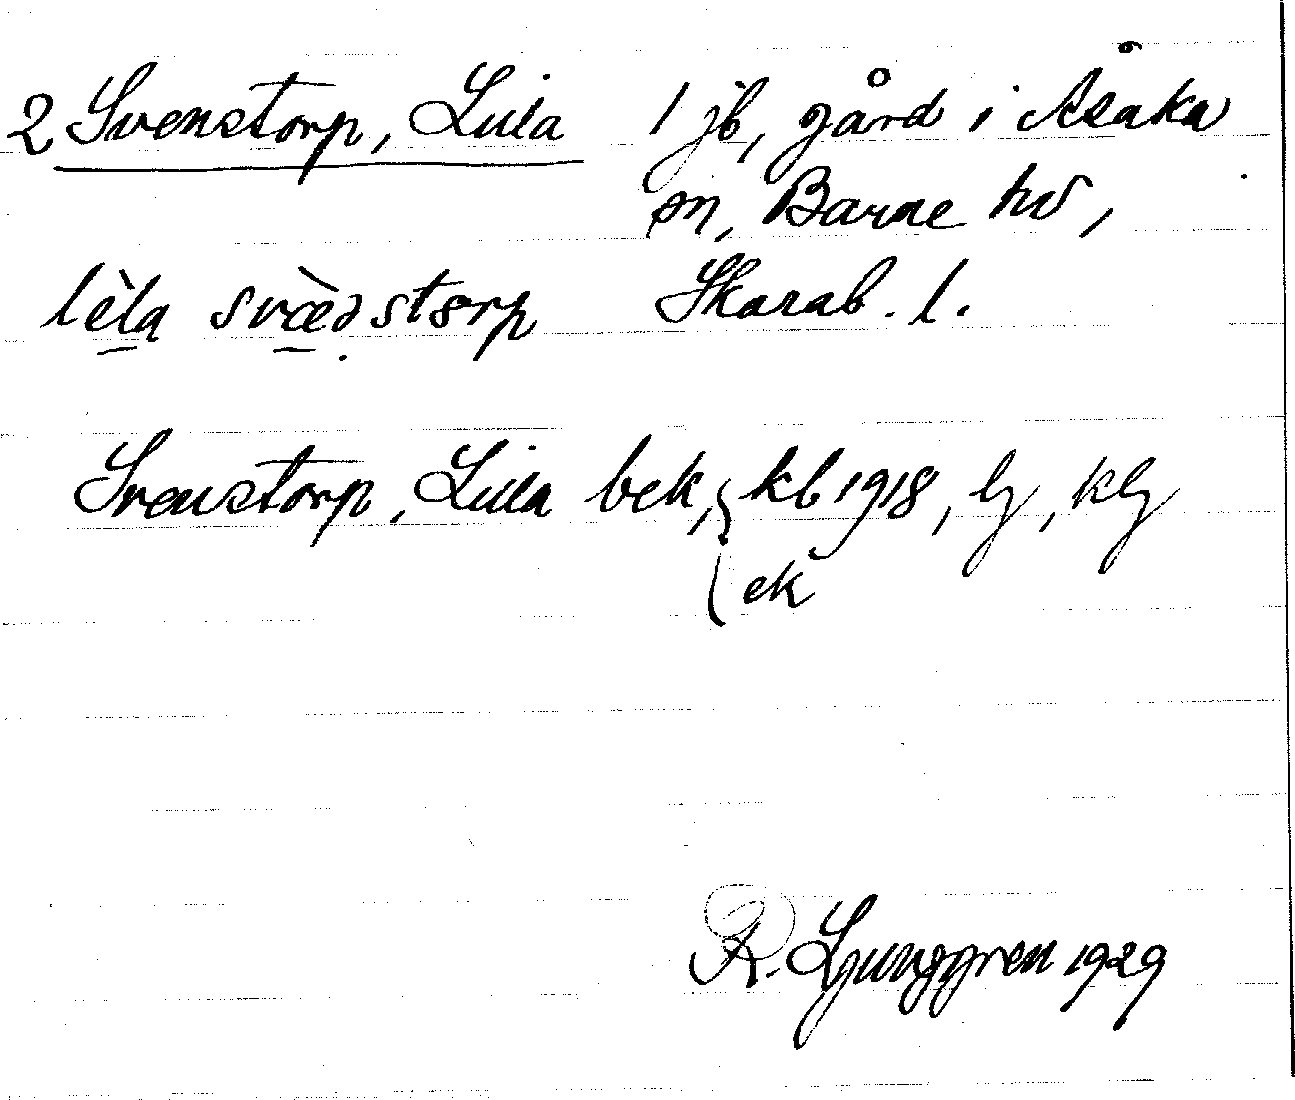 2 Svenstorp, Lilla 1 jb, gård i Åsaka
sn, Barne hd,
Skarab. l.
lèla svæ̀nstorp
Svenstorp, Lilla bek, { kb 1918, lj, klj
ek
R. Ljunggren 1929